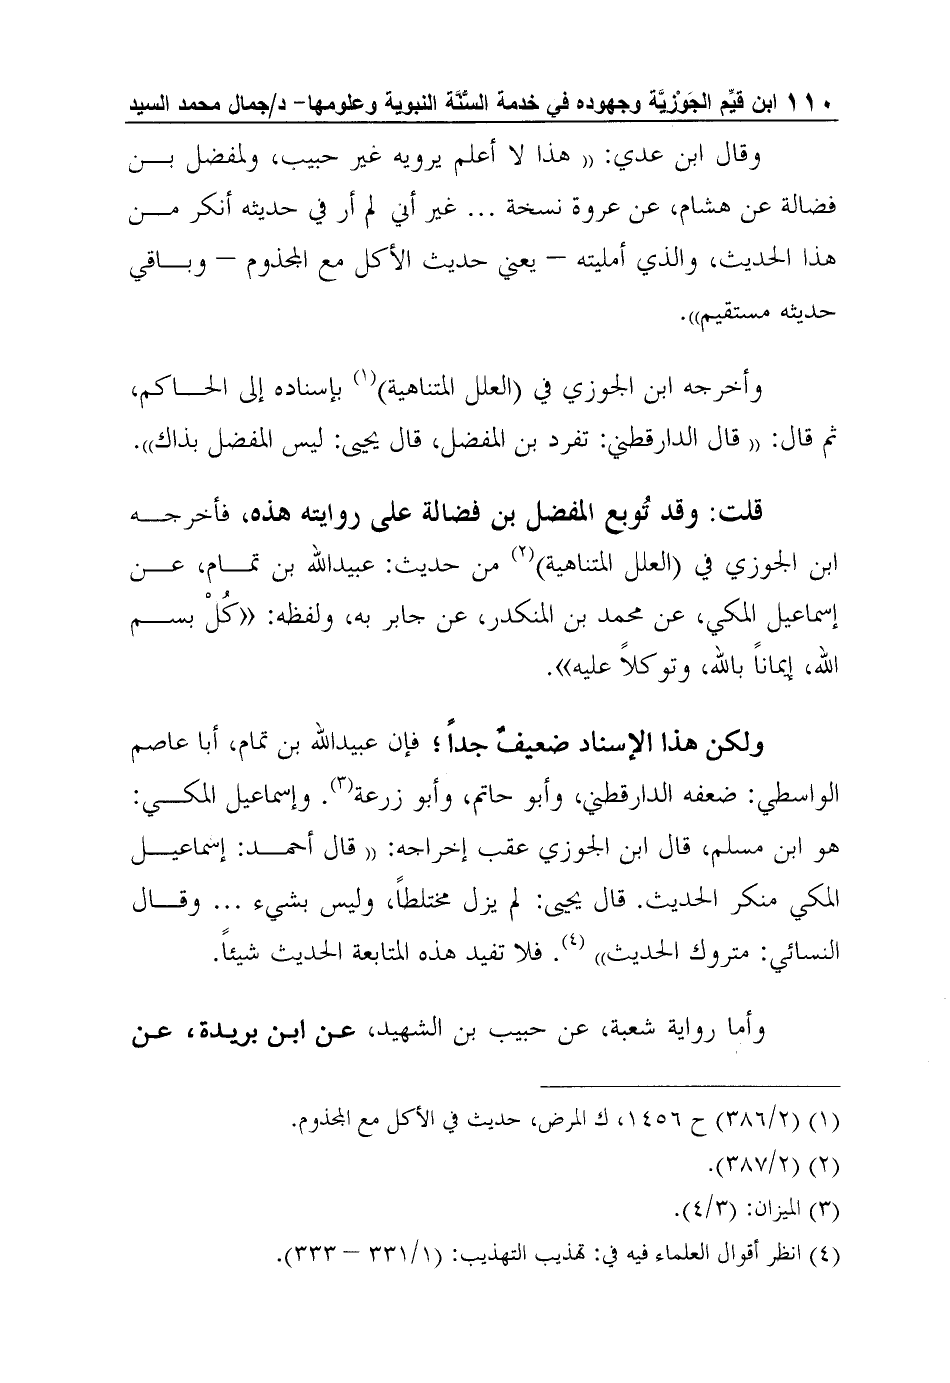 ١١٠ ابن قيِّم الجَوْزيَّة وجهوده في خدمة السنَّة النبوية وعلومها- د/جمال محمد السيد
وقال ابن عدي: (( هذا لا أعلم يرويه غير حبيب، ولمفضل بن
فضالة عن هشام، عن عروة نسخة ... غير أني لم أر في حديثه أنكر من
هذا الحديث، والذي أمليته – يعني حديث الأكل مع المجذوم – وباقي
حديثه مستقيم)).
وأخرجه ابن الجوزي في (العلل المتناهية)(١) بإسناده إلى الحاكم،
ثم قال: (( قال الدارقطني: تفرد بن المفضل، قال يحيى: ليس المفضل بذاك)).
قلت: وقد تُوبع المفضل بن فضالة على روايته هذه، فأخرجه
ابن الجوزي في (العلل المتناهية)(٢) من حديث: عبيدالله بن تمام، عن
إسماعيل المكي، عن محمد بن المنكدر، عن جابر به، ولفظه: «كُلْ بسم
الله، إيماناً بالله، وتوكلاً عليه».
ولكن هذا الإسناد ضعيفٌ جداً؛ فإن عبيدالله بن تمام، أبا عاصم
الواسطي: ضعفه الدارقطني، وأبو حاتم، وأبو زرعة(٣). وإسماعيل المكي:
هو ابن مسلم، قال ابن الجوزي عقب إخراجه: (( قال أحمد: إسماعيل
المكي منكر الحديث. قال يحيى: لم يزل مختلطاً، وليس بشيء ... وقال
النسائي: متروك الحديث)) (٤). فلا تفيد هذه المتابعة الحديث شيئاً.
وأما رواية شعبة، عن حبيب بن الشهيد، عن ابن بريدة، عن
(١) (٣٨٦/٢) ح ١٤٥٦، ك المرض، حديث في الأكل مع المجذوم.
(٢) (٣٨٧/٢).
(٣) الميزان: (٤/٣).
(٤) انظر أقوال العلماء فيه في: تهذيب التهذيب: (٣٣١/١ – ٣٣٣).